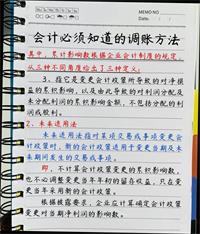 MEMO NO.
Date: / /
会计必须知道的调账方法
其中，累计影响数根据企业会计制度的规定，
从三种不同角度给出了三种定义：
3、指它是变更会计政策所导致的对净损
益的累积影响，以及由此导致的对利润分配及
未分配利润的累积影响金额，不包括分配的利
润或股利。
2、未来适用法
未来适用法指对某项交易或事项变更会
计政策时，新的会计政策适用于变更当期及未
来期间发生的交易或事项。
即，不计算会计政策变更的累积影响数，
也不必调整变更当年年初的留存收益，只在变
更当年采用新的会计政策。
根据披露要求，企业应计算确定会计政策
变更对当期净利润的影响数。